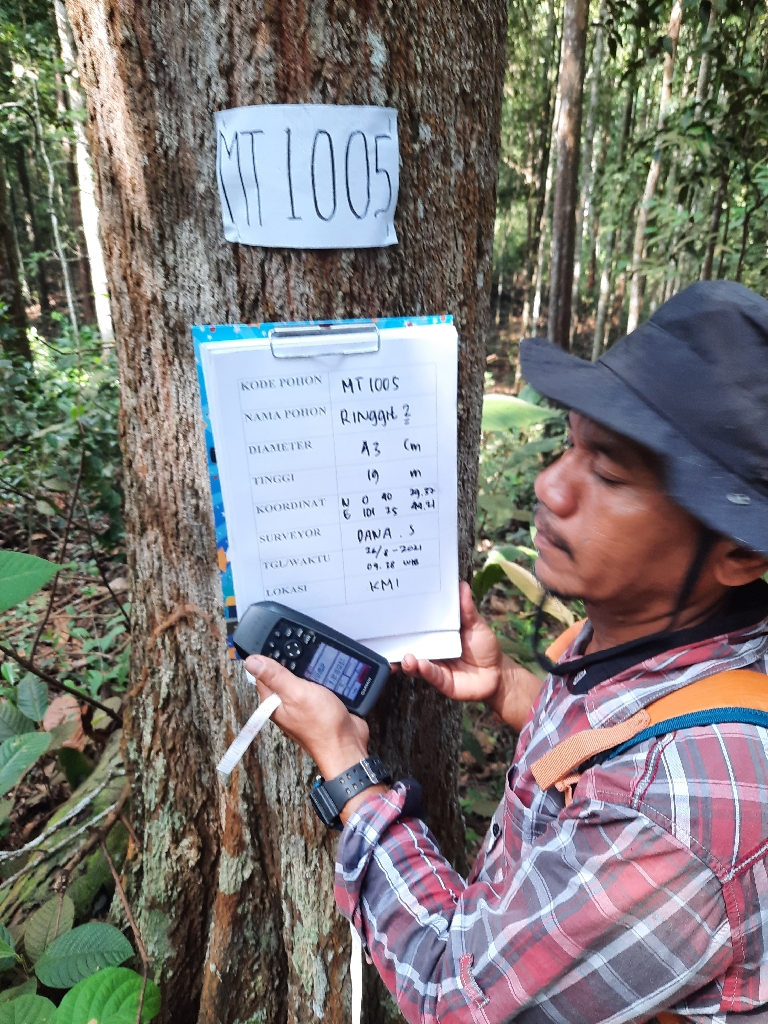 MT 1005
KODE POHON MT 1005
NAMA POHON RINggit 2
DIAMETER 43 Cm
TINGGI 19 m
KOORDINAT N 0 40
E 101 25
SURVEYOR DANA . S
TGL/WAKTU 26/6-2021
09.28 WIB
LOKASI KMI
GARMIN